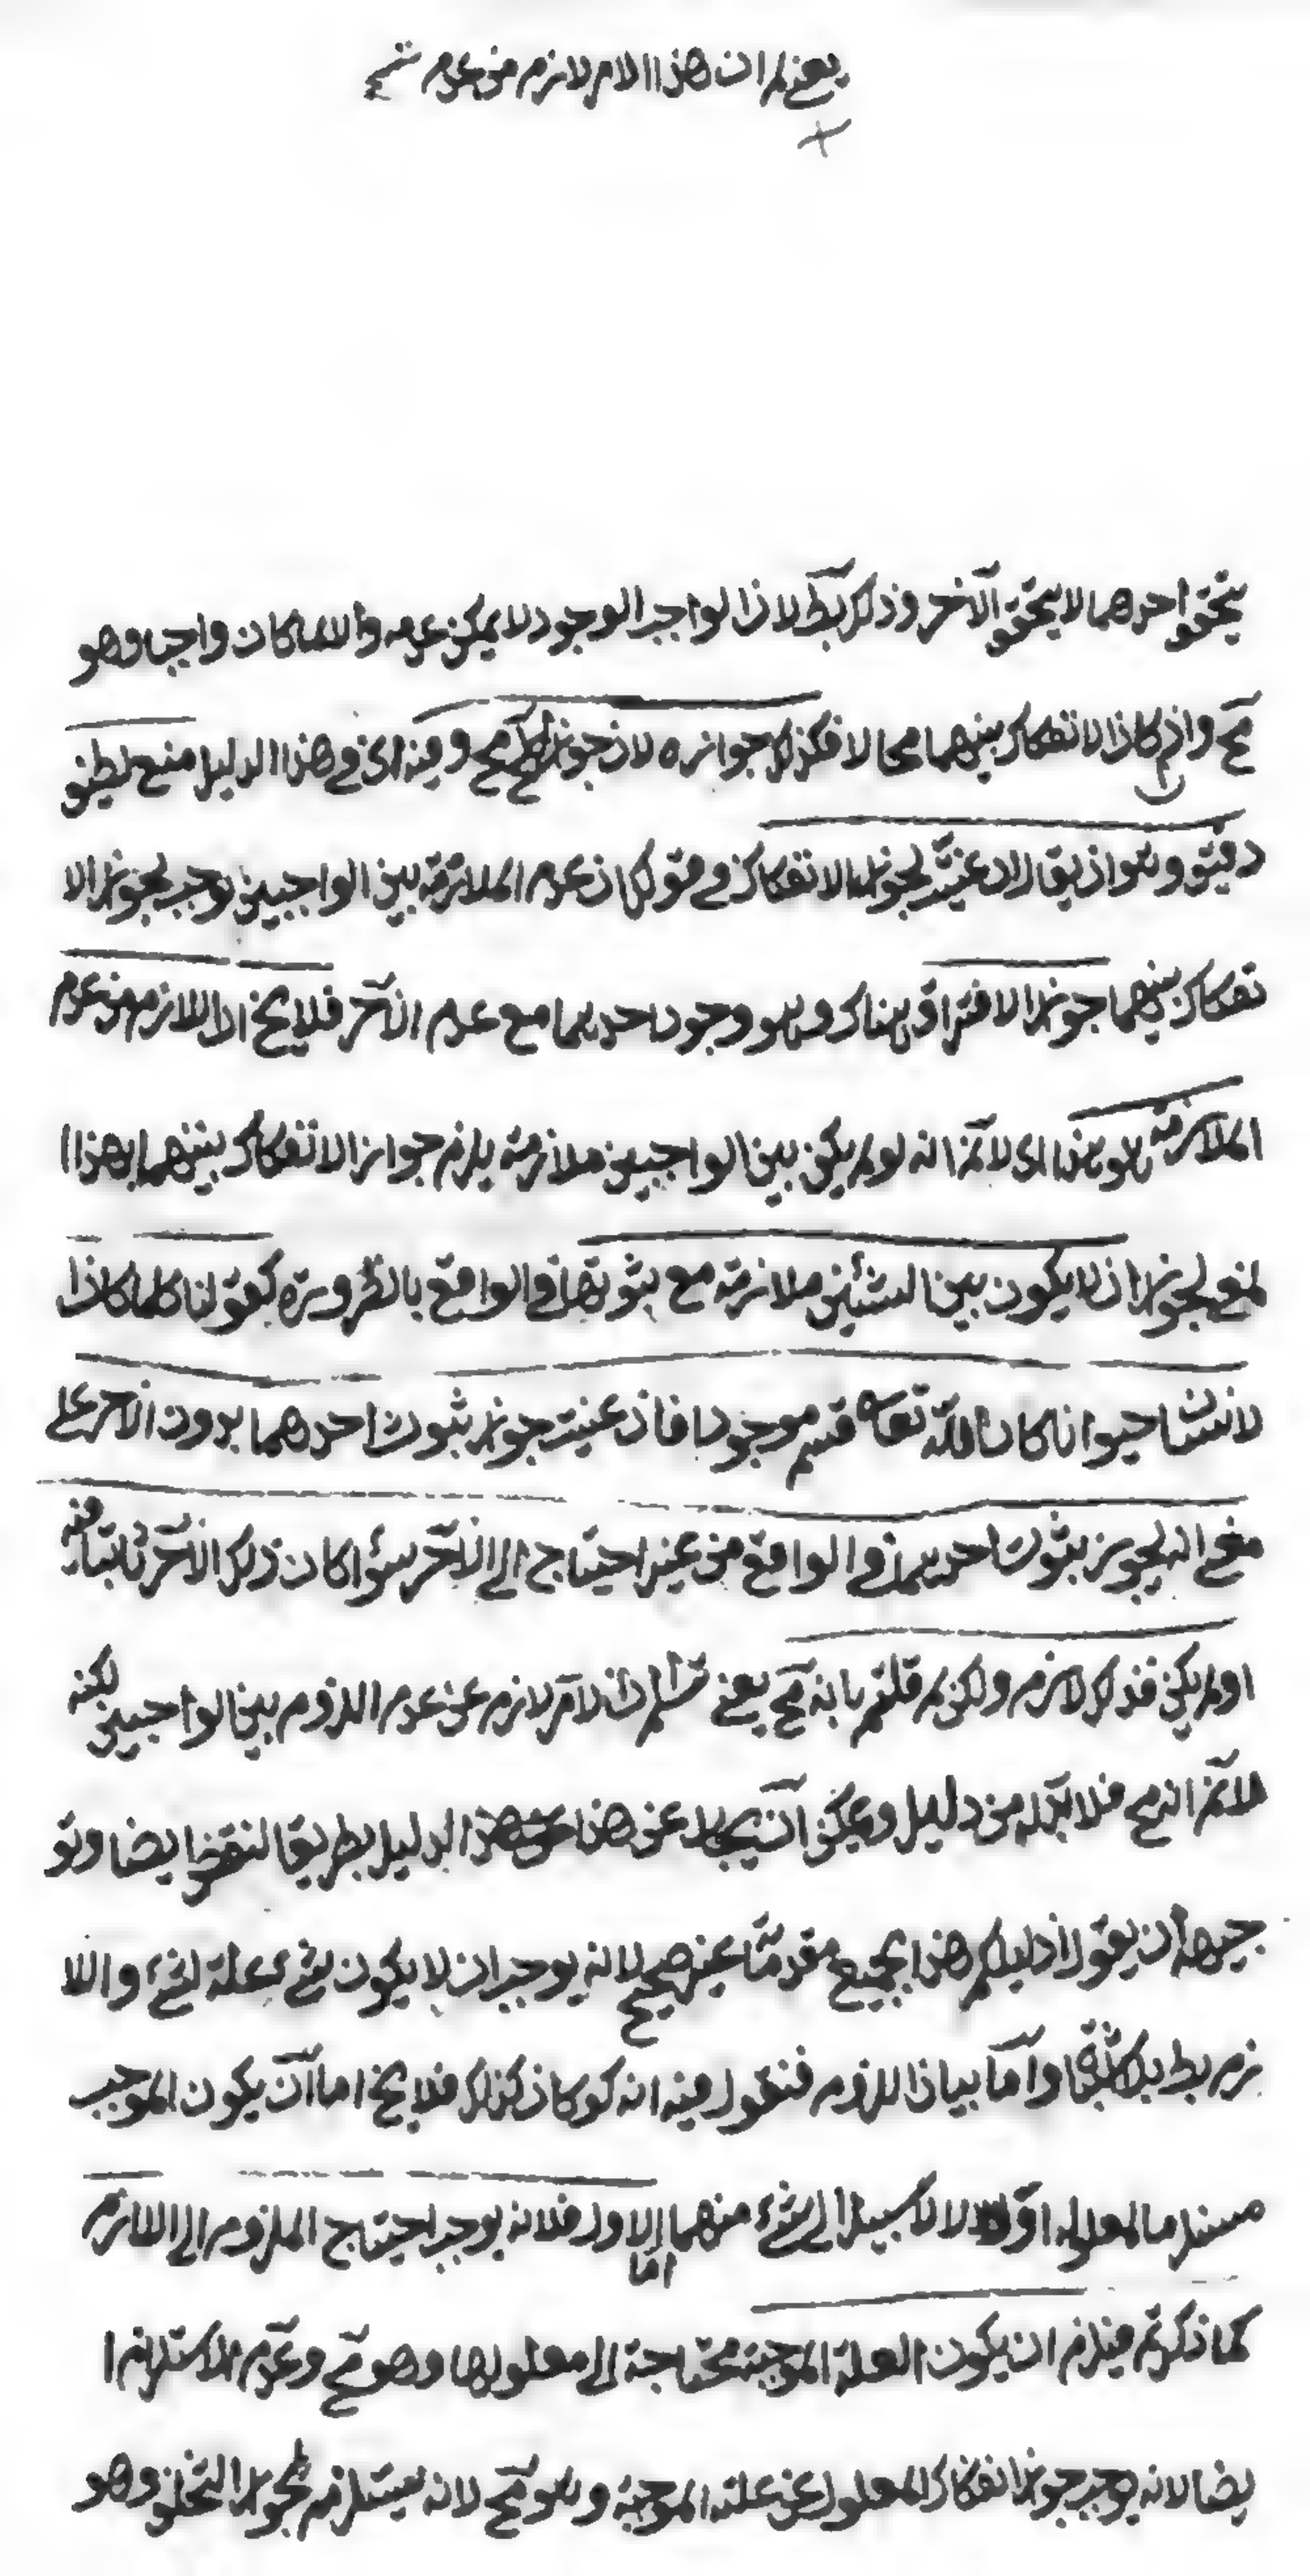 يعنى لم ان هذا الامر لازم من عدم
يتحقق احدهما لا يتحقق الآخر وذلك بط لان الواجب الوجود لا يمكن عدمه والا لما كان واجبا وهو
مح واذا كان الانفكاك بينهما محالا فكذلك جوازه لان جواز المح مح وفيه اى فى هذا الدليل منع لطيف
دقيق وهو ان يقال ان عنيت بجواز الانفكاك فى قولك ان عدم الملازمة بين الواجبين يوجب جواز الا
نفكاك بينهما جواز الافتراق هناك وهو وجود احدهما مع عدم الآخر فلا يخ ان اللازم من عدم
الملازمة هو هذا اى لانم انه لو لم يكن بين الواجبين ملازمة يلزم جواز الانفكاك بينهما بهذا ا
لمعنى لجواز ان لا يكون بين الشيئين ملازمة مع ثبوتهما فى الواقع بالضرورة كقولنا كلما كان ا
لانسان حيوانا كان الله تعالى موجودا فان عنيت جواز ثبوت احدهما بدون الآخر على
معنى انه يجوز ثبوت احدهما فى الواقع من غير احتياج الى الآخر سواء كان ذلك الآخر ثابتا فيه
او لم يكن فذلك لازم ولكن لم قلتم بانه مح يعنى نسلم ان الامر لازم عن عدم اللزوم بين الواجبين لكنه
لانم انه مح فلا بد له من دليل ويمكن آن يجاب عن هذا الدليل بطريق النقض ايضا وتو
جيهه أن يقول ان دليلكم هذا بجميع مقدماته غير صحيح لانه يوجب ان لا يكون شئ بعلة لشئ واللا
زم بط وآما بيان اللزوم فنقول فيه انه لو كان كذلك فلا يخ اما آن يكون الموجب
مستلزما لمعلوله اولا لا سبيل الى شئ منهما اما الاول فلانه يوجب احتياج الملزوم الى اللازم
كما ذكرتم فيلزم ان يكون العلة الموجبة محتاجة الى معلولها وهو مح وعدم الاستلزام ا
يضا لانه يوجب جواز انفكاك المعلول عن علته الموجبة وهو مح لانه يستلزم جواز التخلف وهو